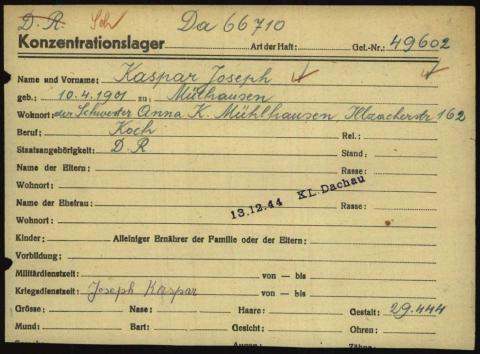 D. R. Sch Da 66710
Konzentrationslager Art der Haft: Gef.-Nr.: 49602
Name und Vorname: Kaspar Joseph
geb.: 10.4.1901 zu: Mülhausen
Wohnort: der Schwester Anna K. Mühlhausen Illzacherstr 162
Beruf: Koch Rel.:
Staatsangehörigkeit: D.R Stand:
Name der Eltern: Rasse:
Wohnort:
13.12.44 KL. Dachau
Name der Ehefrau: Rasse:
Wohnort:
Kinder: Alleiniger Ernährer der Familie oder der Eltern:
Vorbildung:
Militärdienstzeit: von — bis
Kriegsdienstzeit: Joseph Kaspar von — bis
Grösse: Nase: Haare: Gestalt: 29.444
Mund: Bart: Gesicht: Ohren: